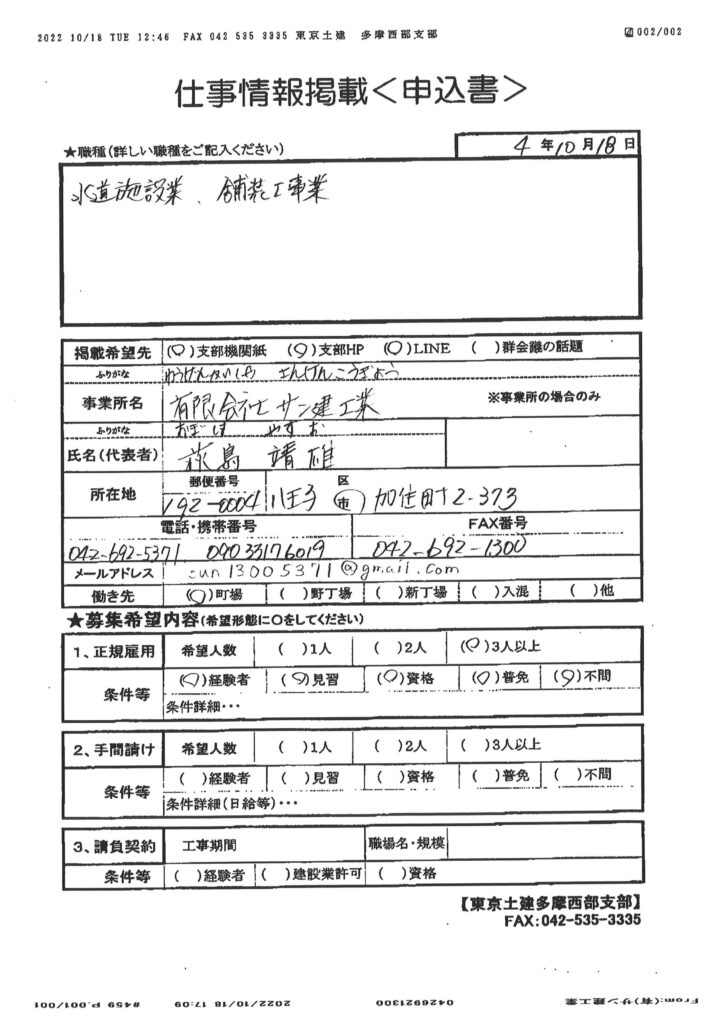 2022 10/18 TUE 12:46 FAX 042 535 3335 東京土建 多摩西部支部 002/002
仕事情報掲載＜申込書＞
★職種(詳しい職種をご記入ください) 4 年 10 月 18 日
水道施設業、舗装工事業
掲載希望先 (○)支部機関紙 (○)支部HP (○)LINE ( )群会議の話題
ふりがな ゆうげんがいしゃ さんけんこうぎょう
事業所名 有限会社サン建工業 ※事業所の場合のみ
ふりがな おぎしま やすお
氏名(代表者) 荻島 靖雄
所在地 郵便番号 区
192-0004 八王子 市 加住町2-373
電話・携帯番号 FAX番号
042-692-5371 090 3317 6019 042-692-1300
メールアドレス sun13005371@gmail.com
働き先 (○)町場 ( )野丁場 ( )新丁場 ( )入混 ( )他
★募集希望内容(希望形態に○をしてください)
1、正規雇用 希望人数 ( )1人 ( )2人 (○)3人以上
条件等 (○)経験者 (○)見習 (○)資格 (○)普免 (○)不問
条件詳細・・・
2、手間請け 希望人数 ( )1人 ( )2人 ( )3人以上
条件等 ( )経験者 ( )見習 ( )資格 ( )普免 ( )不問
条件詳細(日給等)・・・
3、請負契約 工事期間 職場名・規模
条件等 ( )経験者 ( )建設業許可 ( )資格
【東京土建多摩西部支部】
FAX:042-535-3335
From:(有)サン建工業 0426921300 2022/10/18 17:09 #459 P.001/001